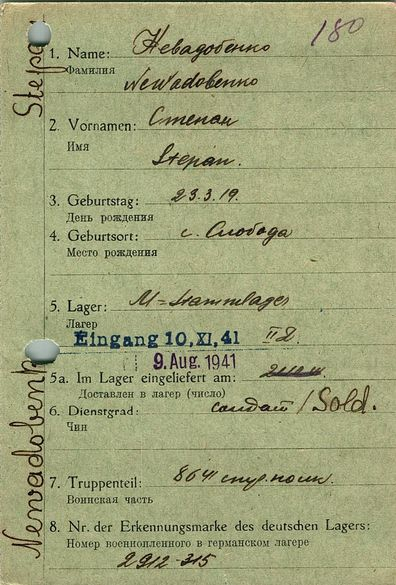 180
1. Name: Невадобенко
Фамилия
Newadobenko
2. Vornamen: Степан
Имя
Stepan.
3. Geburtstag: 23.3.19.
День рождения
4. Geburtsort: с. Слобода
Место рождения
5. Lager: M=Stammlager
Лагерь
Eingang 10, XI, 41 II D.
9. Aug. 1941
5a. Im Lager eingeliefert am:
Доставлен в лагерь (число)
6. Dienstgrad: солдат / Sold.
Чин
7. Truppenteil: 8641
Воинская часть
8. Nr. der Erkennungsmarke des deutschen Lagers:
Номер военнопленного в германском лагере
2912-315
Newadobenk
Stepa